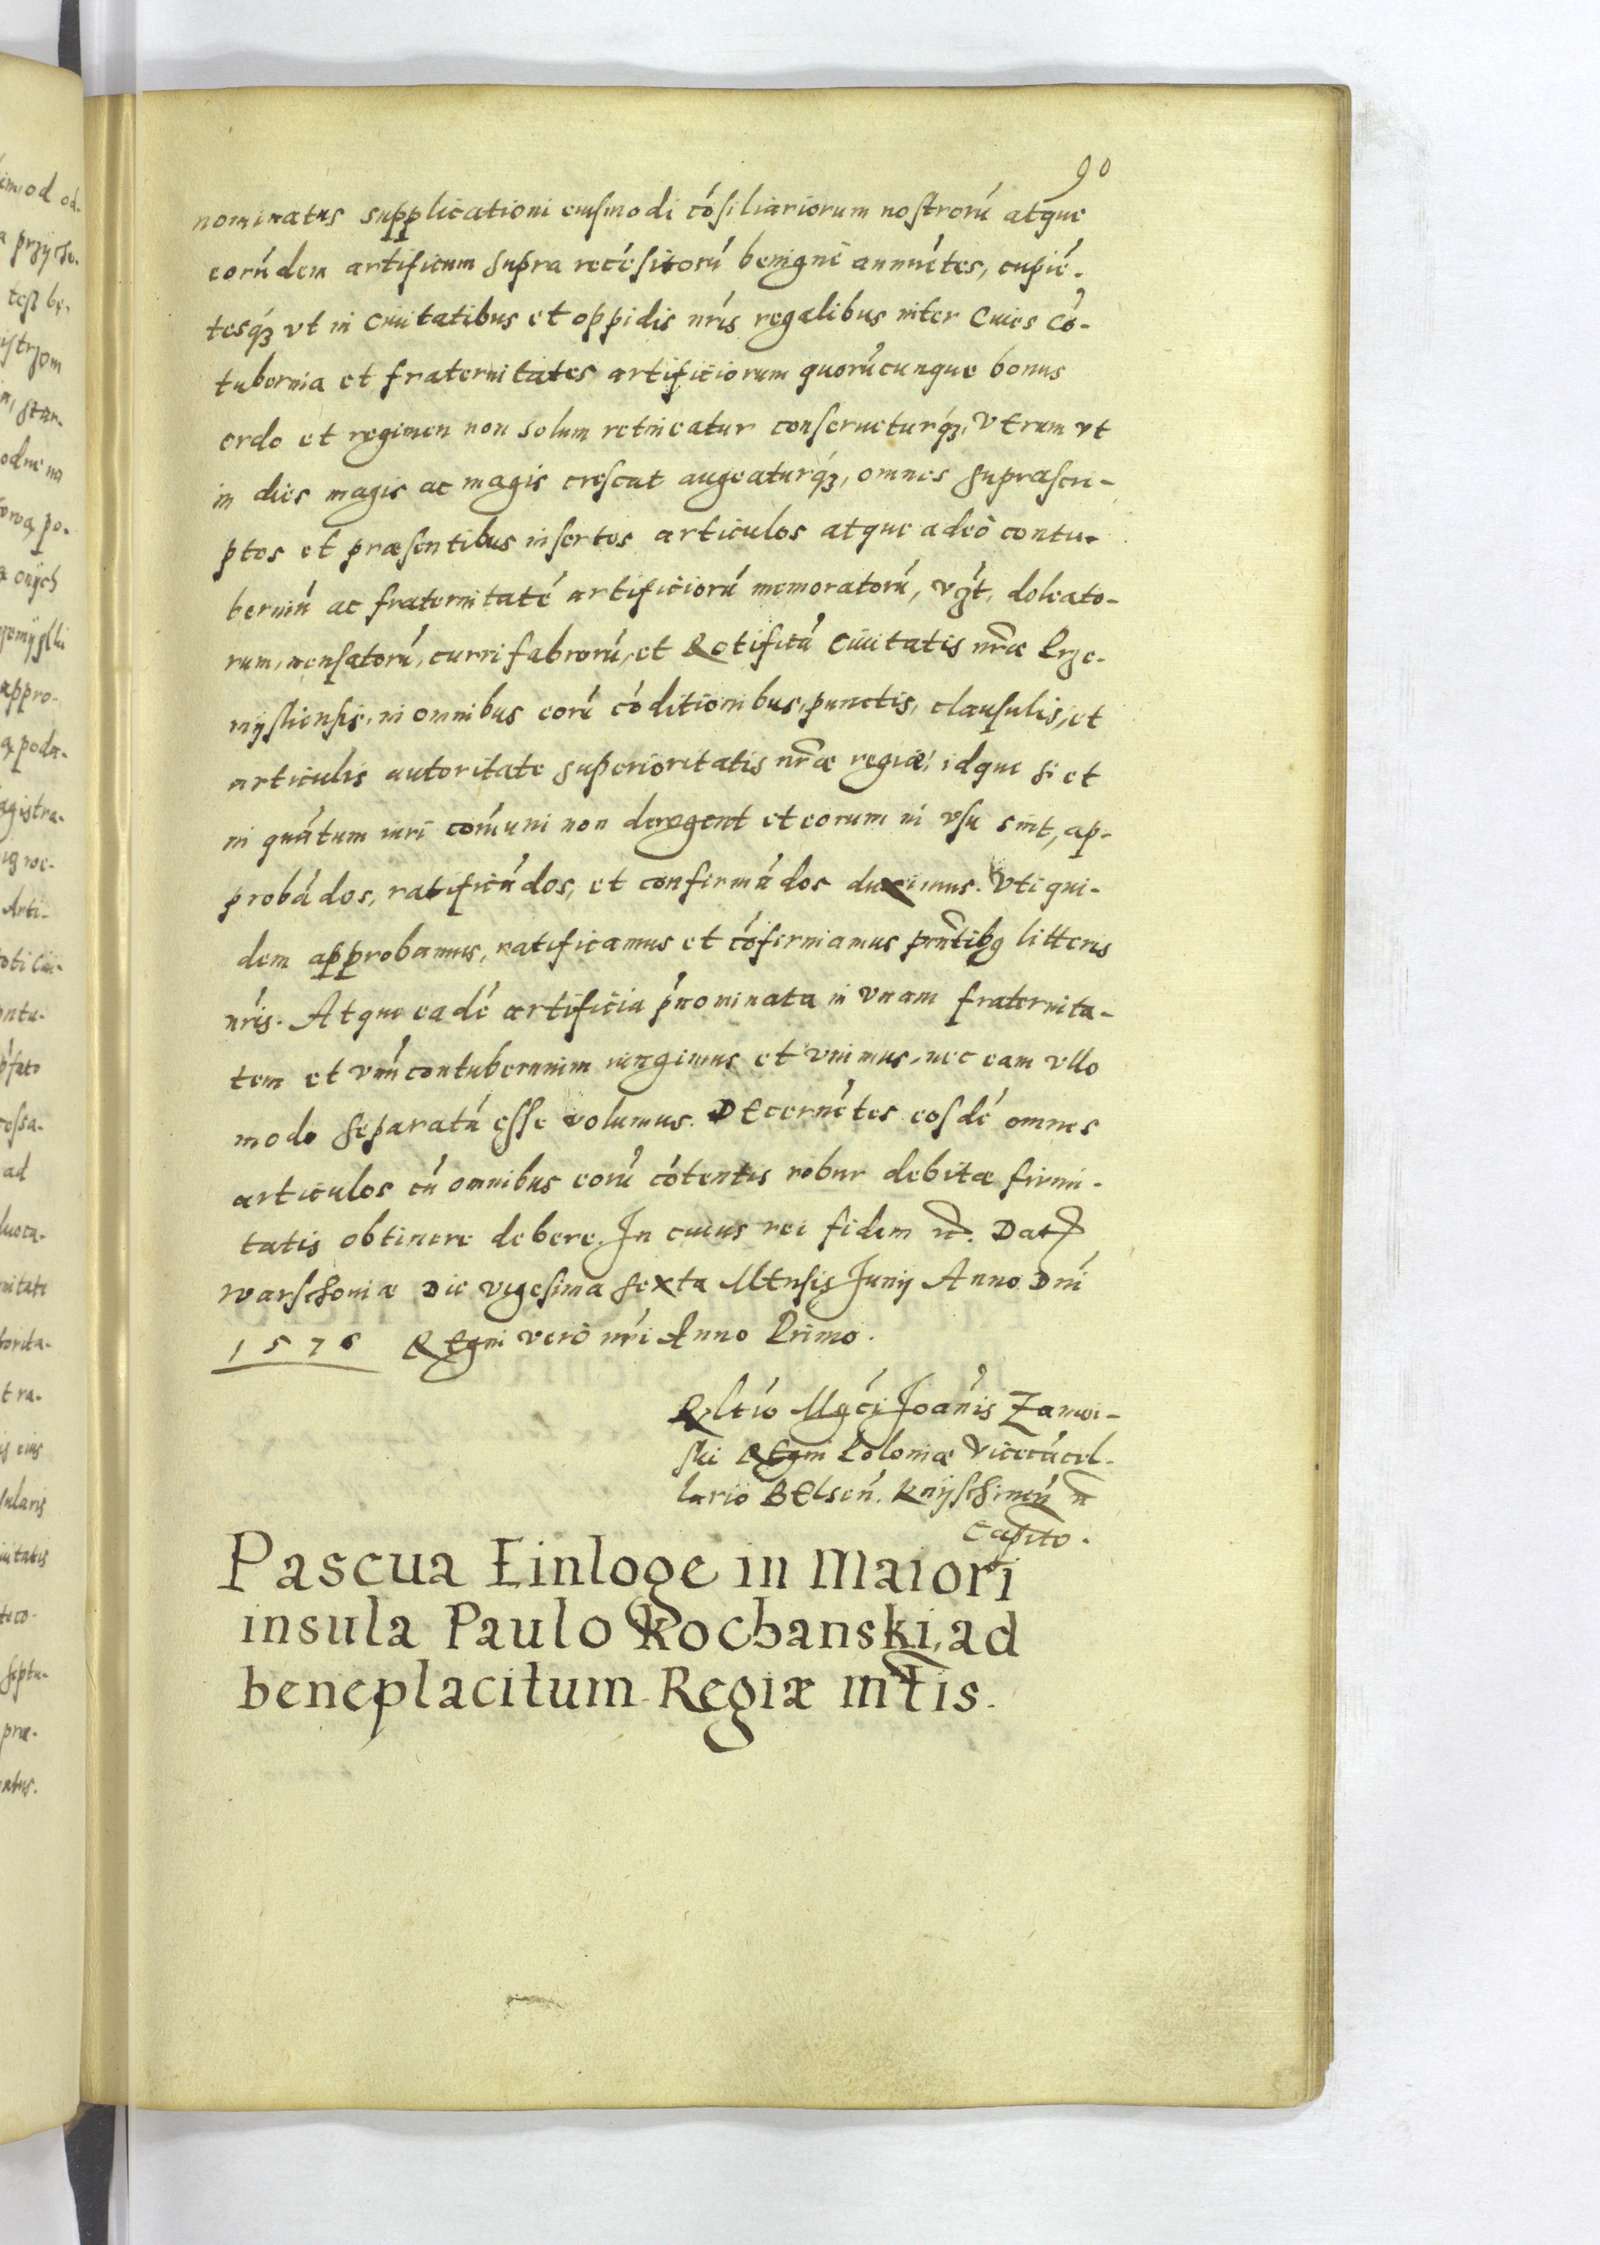 90
nominatus supplicationi eiusmodi cósiliariorum nostrorú atque
eorúdem artificum supra recésitorú benigné annuétes, cupié-
tesq́ʒ vt in Ciuitatibus et oppidis nr̃is regalibus inter Ciues Có-
tubernia et fraternitates artificiorum quorúcunque bonus
ordo et regimen non solum retineatur conserueturq́ʒ, Verum vt
in dies magis ac magis crescat augeaturq́ʒ, omnes suprascri-
ptos et præsentibus insertos articulos atque adeò contu-
berniú ac fraternitaté artificiorú memoratorú, vǵt, doleato-
rum, mensatorú, currifabrorú, et Rotificú Ciuitatis nr̃æ Prze-
mysliensis, in omnibus eorú códitionibus, punctis, clausulis, et
articulis autoritate superioritatis nr̃æ regiæ, idque si et
in quátum iuri cómuni non derogent et eorum in vsu sint, ap-
probádos, ratificádos, et confirmádos duximus. Vti qui-
dem approbamus, ratificamus et cófirmamus pr̃ntibꝯ litteris
nr̃is. Atque eadé artificia ṕnominata in vnam fraternita-
tem et vnú contubernium iungimus et vnimus, nec eam vllo
modo separatá esse volumus. DEcernétes eosdé omnes
articulos cú omnibus eorú cótentis robur debitæ firmi-
tatis obtinere debere. In cuius rei fidem etc. Dat
warschouiæ Die vigesima sexta MEnsis Junij Anno Dńi
1576 REgni verò nr̃i Anno Primo.
Reltió Mgćj Joánis Zamoi-
ski REgni Poloniæ Vicecácel-
larió BElseń. Knyschineń etc
Capito.
Pascua Einloge in Maiori
insula Paulo Kochanski, ad
beneplacitum Regiæ mt̃is.